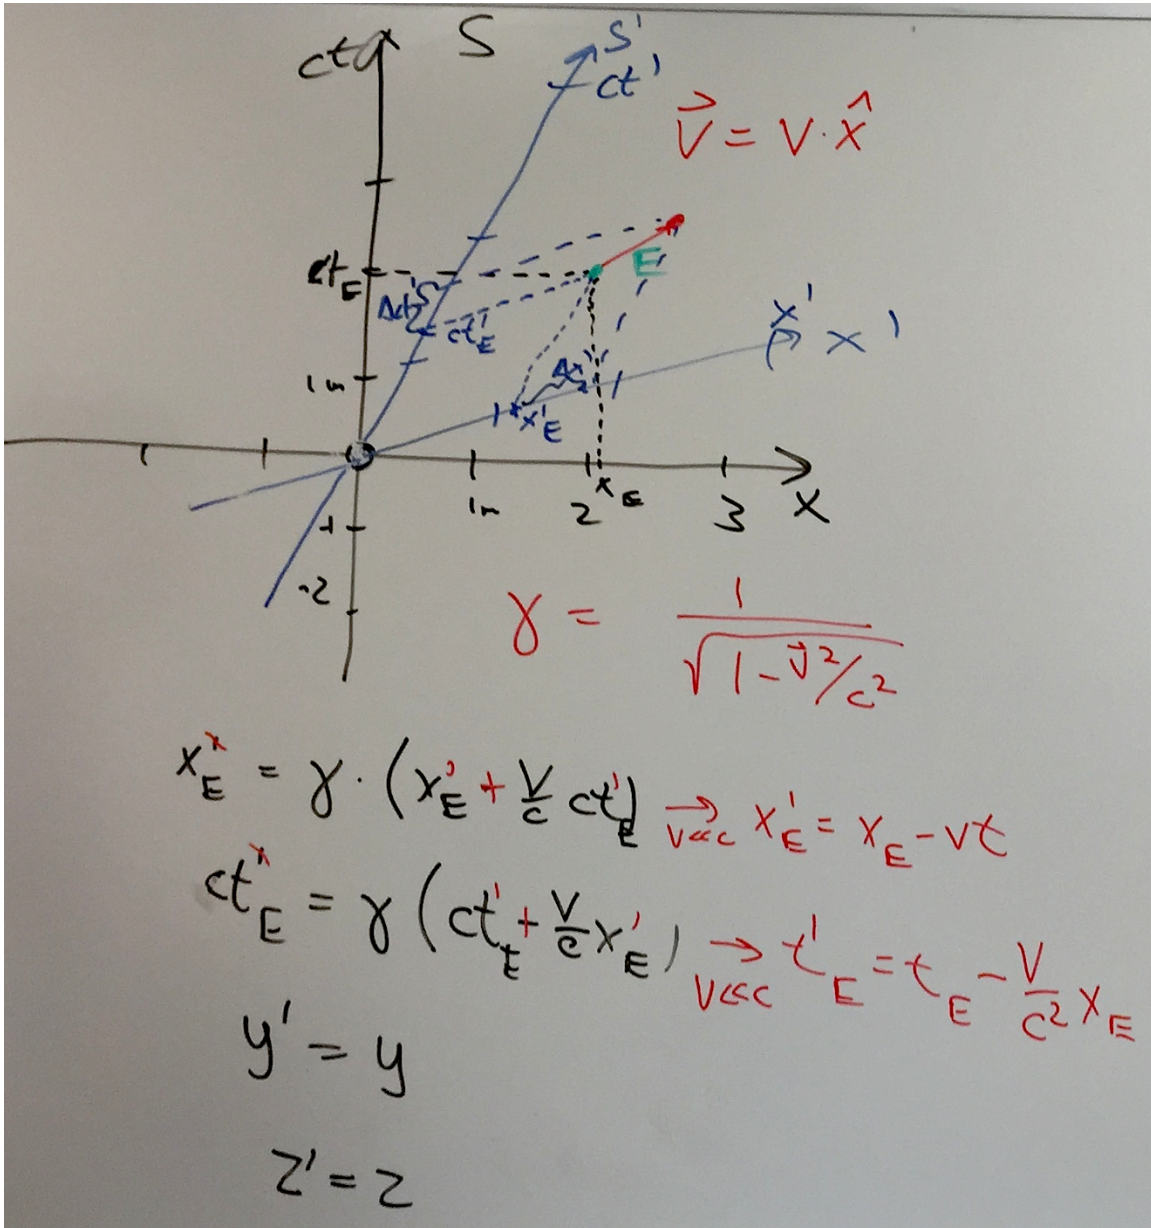 ct S S'
ct'
V⃗ = V · x̂
ct_E E
Δct' ct'_E
x' x'
1m Δx'
x'_E
1m 2 x_E 3 x
-1
-2
γ = 1 / √(1 - V⃗²/c²)
x_E = γ · (x'_E + V/c ct'_E) → V<<c x'_E = x_E - vt
ct_E = γ (ct'_E + V/c x'_E) → V<<c t'_E = t_E - V/c² x_E
y' = y
z' = z